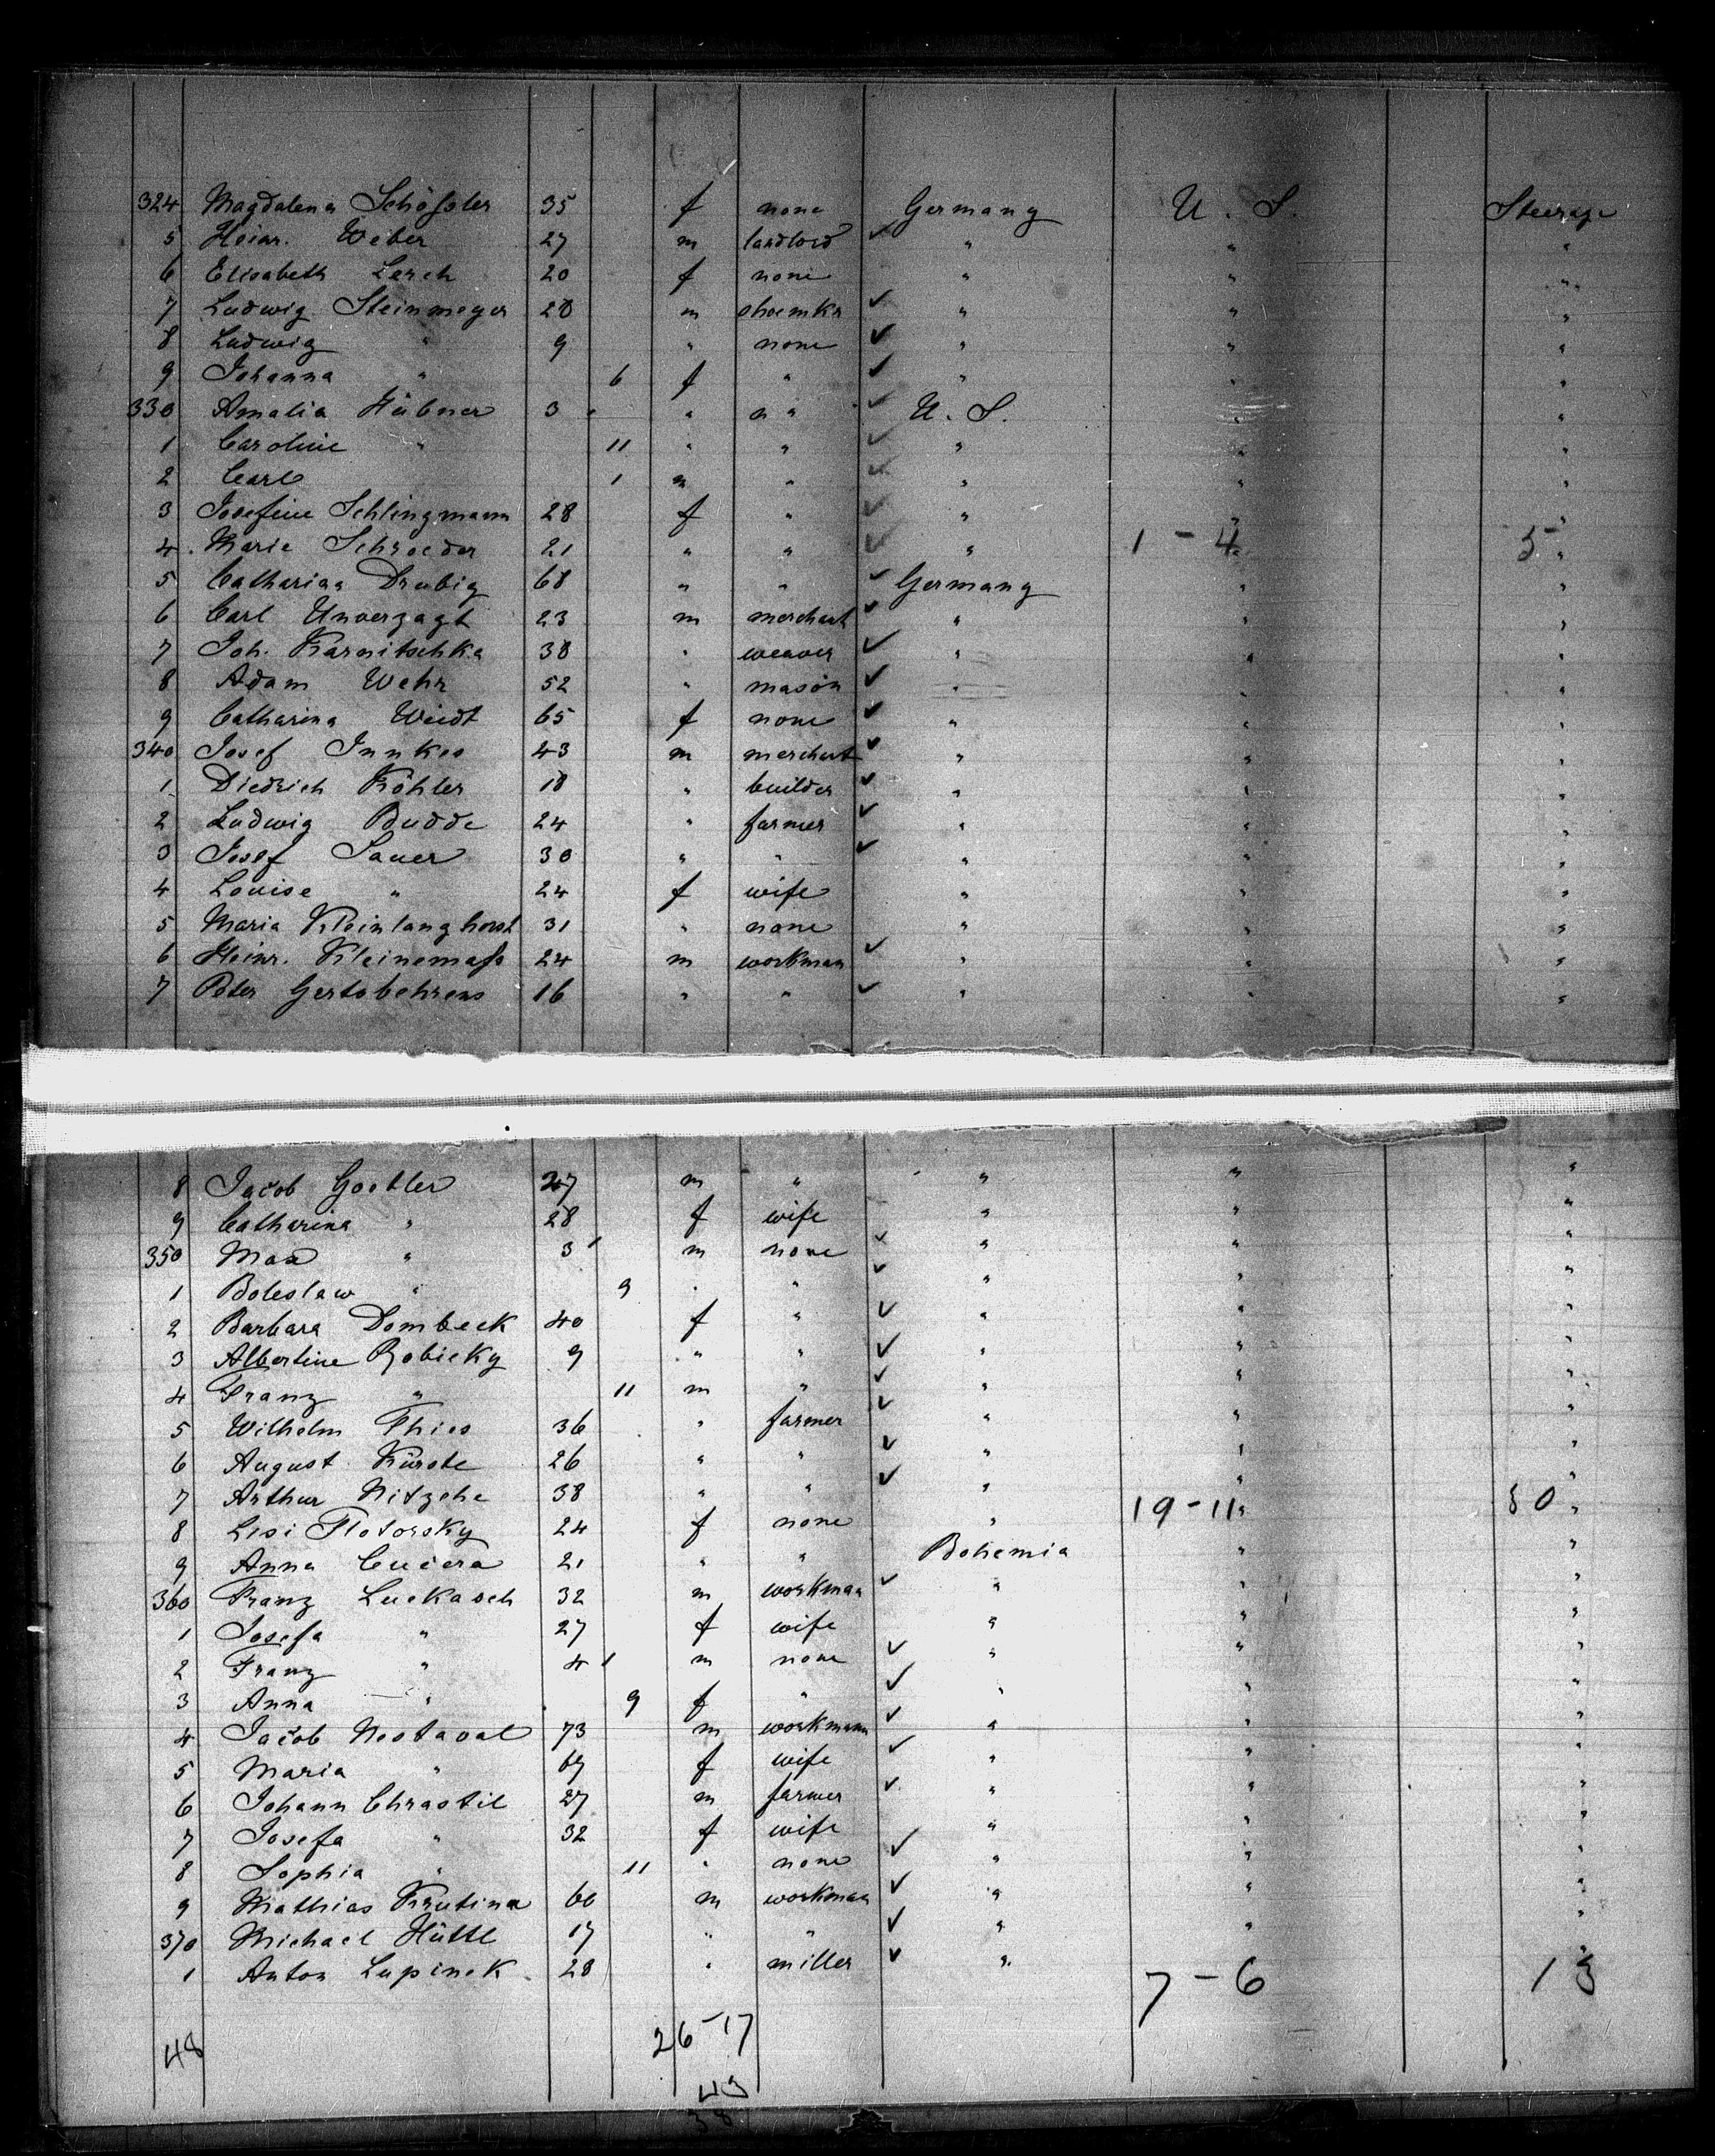 324 Magdalena Schößler 35 f none Germany U. S. Steerage
5 Heinr. Weber 27 m landlord ✓ " " "
6 Elisabeth Lerch 20 f none " " "
7 Ludwig Steinmeyer 28 m shoemkr ✓ " " "
8 Ludwig " 9 " none ✓ " " "
9 Johanna " 6 f " ✓ " " "
330 Amalia Hübner 3 " " ✓ U. S. " "
1 Caroline " 11 " " ✓ " " "
2 Carl 1 m " ✓ " " "
3 Josefine Schlingmann 28 f " ✓ " " "
4 Marie Schroeder 21 " " ✓ " 1 - 4 5 "
5 Catharina Drubig 68 " " ✓ Germany " "
6 Carl Unverzagt 23 m merchant ✓ " " "
7 Joh. Karnitschka 38 " weaver ✓ " " "
8 Adam Wehr 52 " mason ✓ " " "
9 Catharina Weidt 65 f none ✓ " " "
340 Josef Junkes 43 m merchant ✓ " " "
1 Diedrich Köhler 18 " builder ✓ " " "
2 Ludwig Budde 24 " farmer ✓ " " "
3 Josef Sauer 30 " " ✓ " " "
4 Louise " 24 f wife " " "
5 Maria Kleinlanghorst 31 " none " " "
6 Heinr. Kleinemaß 24 m workman ✓ " " "
7 Peter Gertsbehrens 16 " " ✓ " " "
8 Jacob Goettler 27 m " " " "
9 Catharina " 28 f wife " " "
350 Max " 3 m none ✓ " " "
1 Boleslaw " 9 " " ✓ " " "
2 Barbara Dombeck 40 f " ✓ " " "
3 Albertine Robicky 9 " " ✓ " " "
4 Franz " 11 m " ✓ " " "
5 Wilhelm Thies 36 " farmer ✓ " " "
6 August Kürste 26 " " ✓ " " "
7 Arthur Nitzche 38 " " ✓ " " "
8 Lisi Flotorsky 24 f none " 19 - 11 30 "
9 Anna Cucera 21 " " Bohemia " "
360 Franz Luckasch 32 m workman ✓ " " "
1 Josefa " 27 f wife " " "
2 Franz " 4 m none ✓ " " "
3 Anna " 9 f " ✓ " " "
4 Jacob Nestaval 73 m workmann ✓ " " "
5 Maria " 69 f wife ✓ " " "
6 Johann Chrastil 27 m farmer ✓ " " "
7 Josefa " 32 f wife " " "
8 Sophia " 11 " none ✓ " " "
9 Mathias Krutina 60 m workman ✓ " " "
370 Michael Hüttl 17 " " ✓ " " "
1 Anton Lupinek 28 " miller ✓ " 7 - 6 13
48 26 - 17
43
38